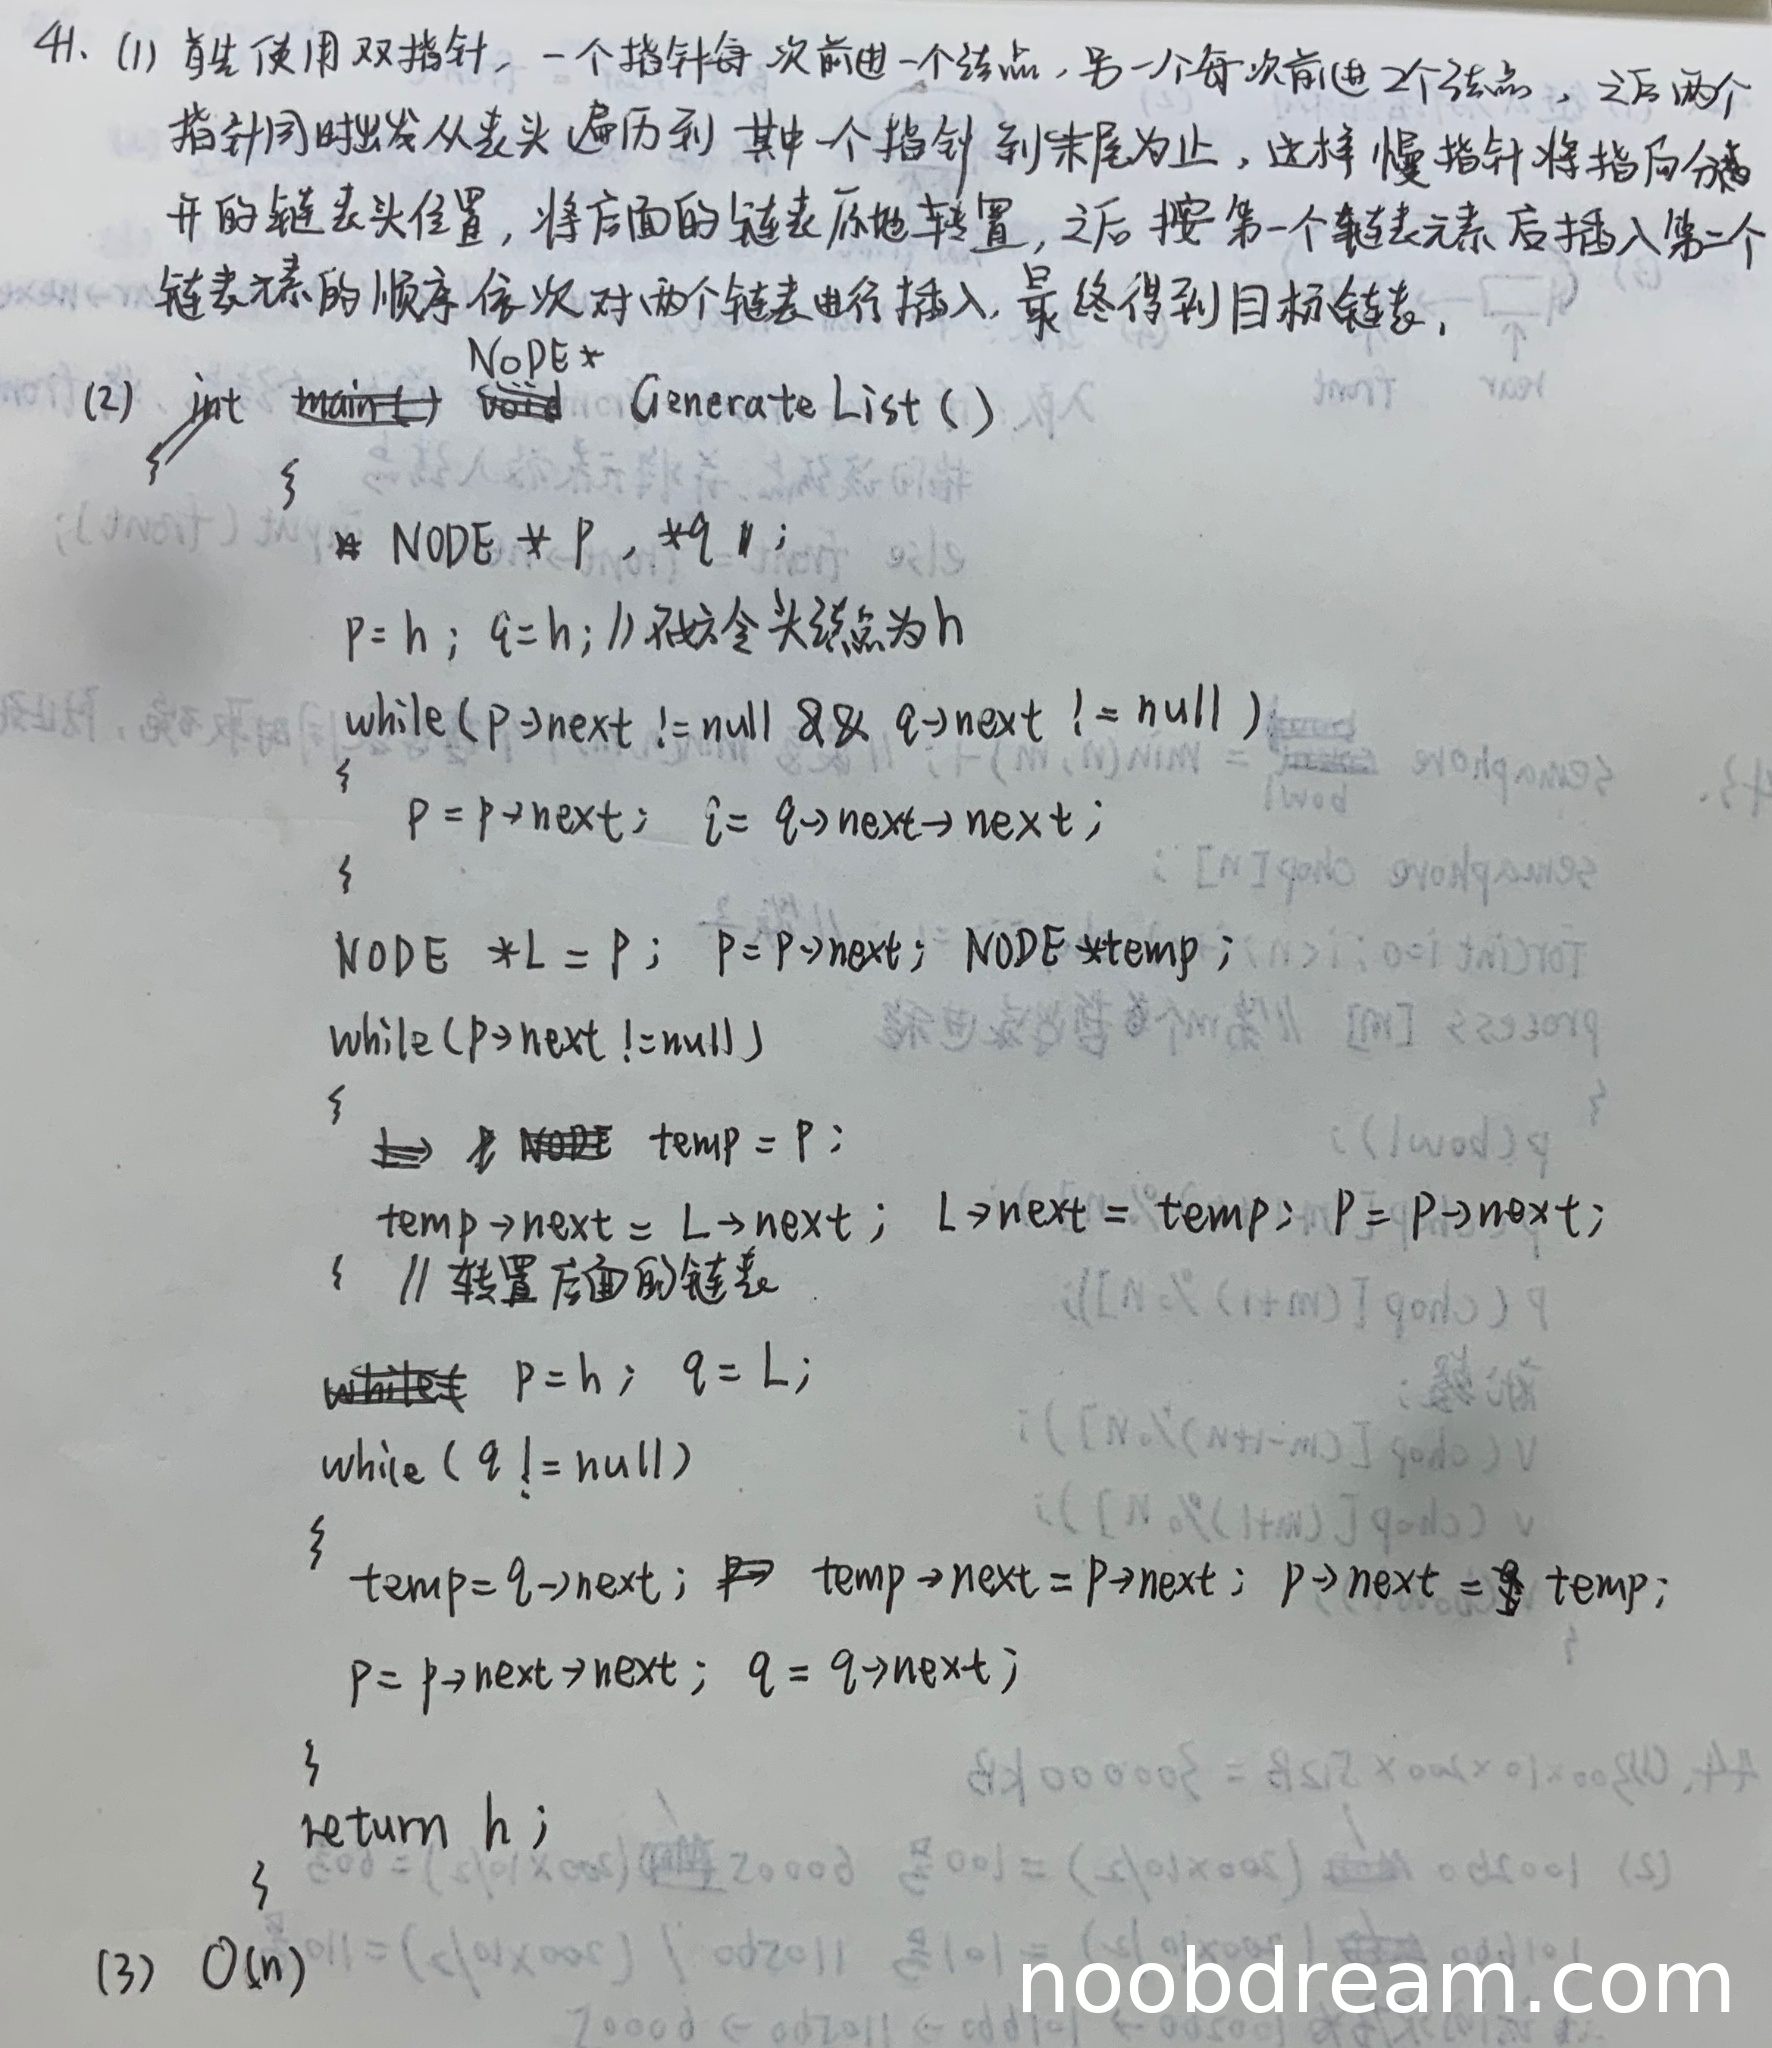 41. (1) 首先使用双指针，一个指针每次前进一个结点，另一个每次前进2个结点，之后两个
指针同时出发从表头遍历到其中一个指针到末尾为止，这样慢指针将指向分离
开的链表头位置，将后面的链表原地转置，之后按第一个链表元素后插入第二个
链表元素的顺序依次对两个链表进行插入，最终得到目标链表，
NODE*
(2) int main() void GenerateList()
{
{
NODE * p , *q ;
p=h; q=h; //不妨令头结点为h
while(p->next != null && q->next != null)
{
p = p->next; q = q->next->next;
}
NODE *L = p; p=p->next; NODE *temp;
while(p->next !=null)
{
L-> NODE temp = p;
temp->next = L->next; L->next = temp; p = p->next;
} //转置后面的链表
while( p=h; q=L;
while(q != null)
{
temp=q->next; p-> temp->next=p->next; p->next = temp;
p= p->next->next; q = q->next;
}
return h;
}
(3) O(n)
noobdream.com